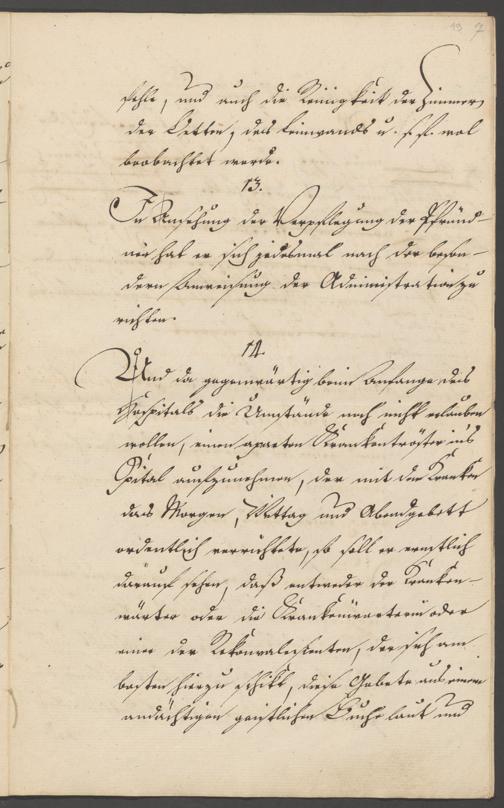 19 7
fehle, und auch die Reinigkeit der Zimmer,
der Betten, des Leinwands u. s. f. wol
beobachtet werde.
13.
In Ansehung der Verpflegung der Pfründ-
ner hat er sich jedesmal nach der beson-
dern Anweisung der Administration zu
richten.
14.
Und da gegenwärtig beim Anfange des
Hospitals die Umstände noch nicht erlauben
wollen, einen aparten Krankentröster ins
Spital aufzunehmen, der mit den Kranken
das Morgen, Mittag und Abendgebett
ordentlich verrichtete, so soll er ernstlich
darauf sehen, daß entweder der Kranken-
wärter oder die Krankenwärterin oder
einer der Rekonvaleszenten, der sich am
besten hierzu schikt, diese Gebete aus einem
andächtigen geistlichen Buche laut und